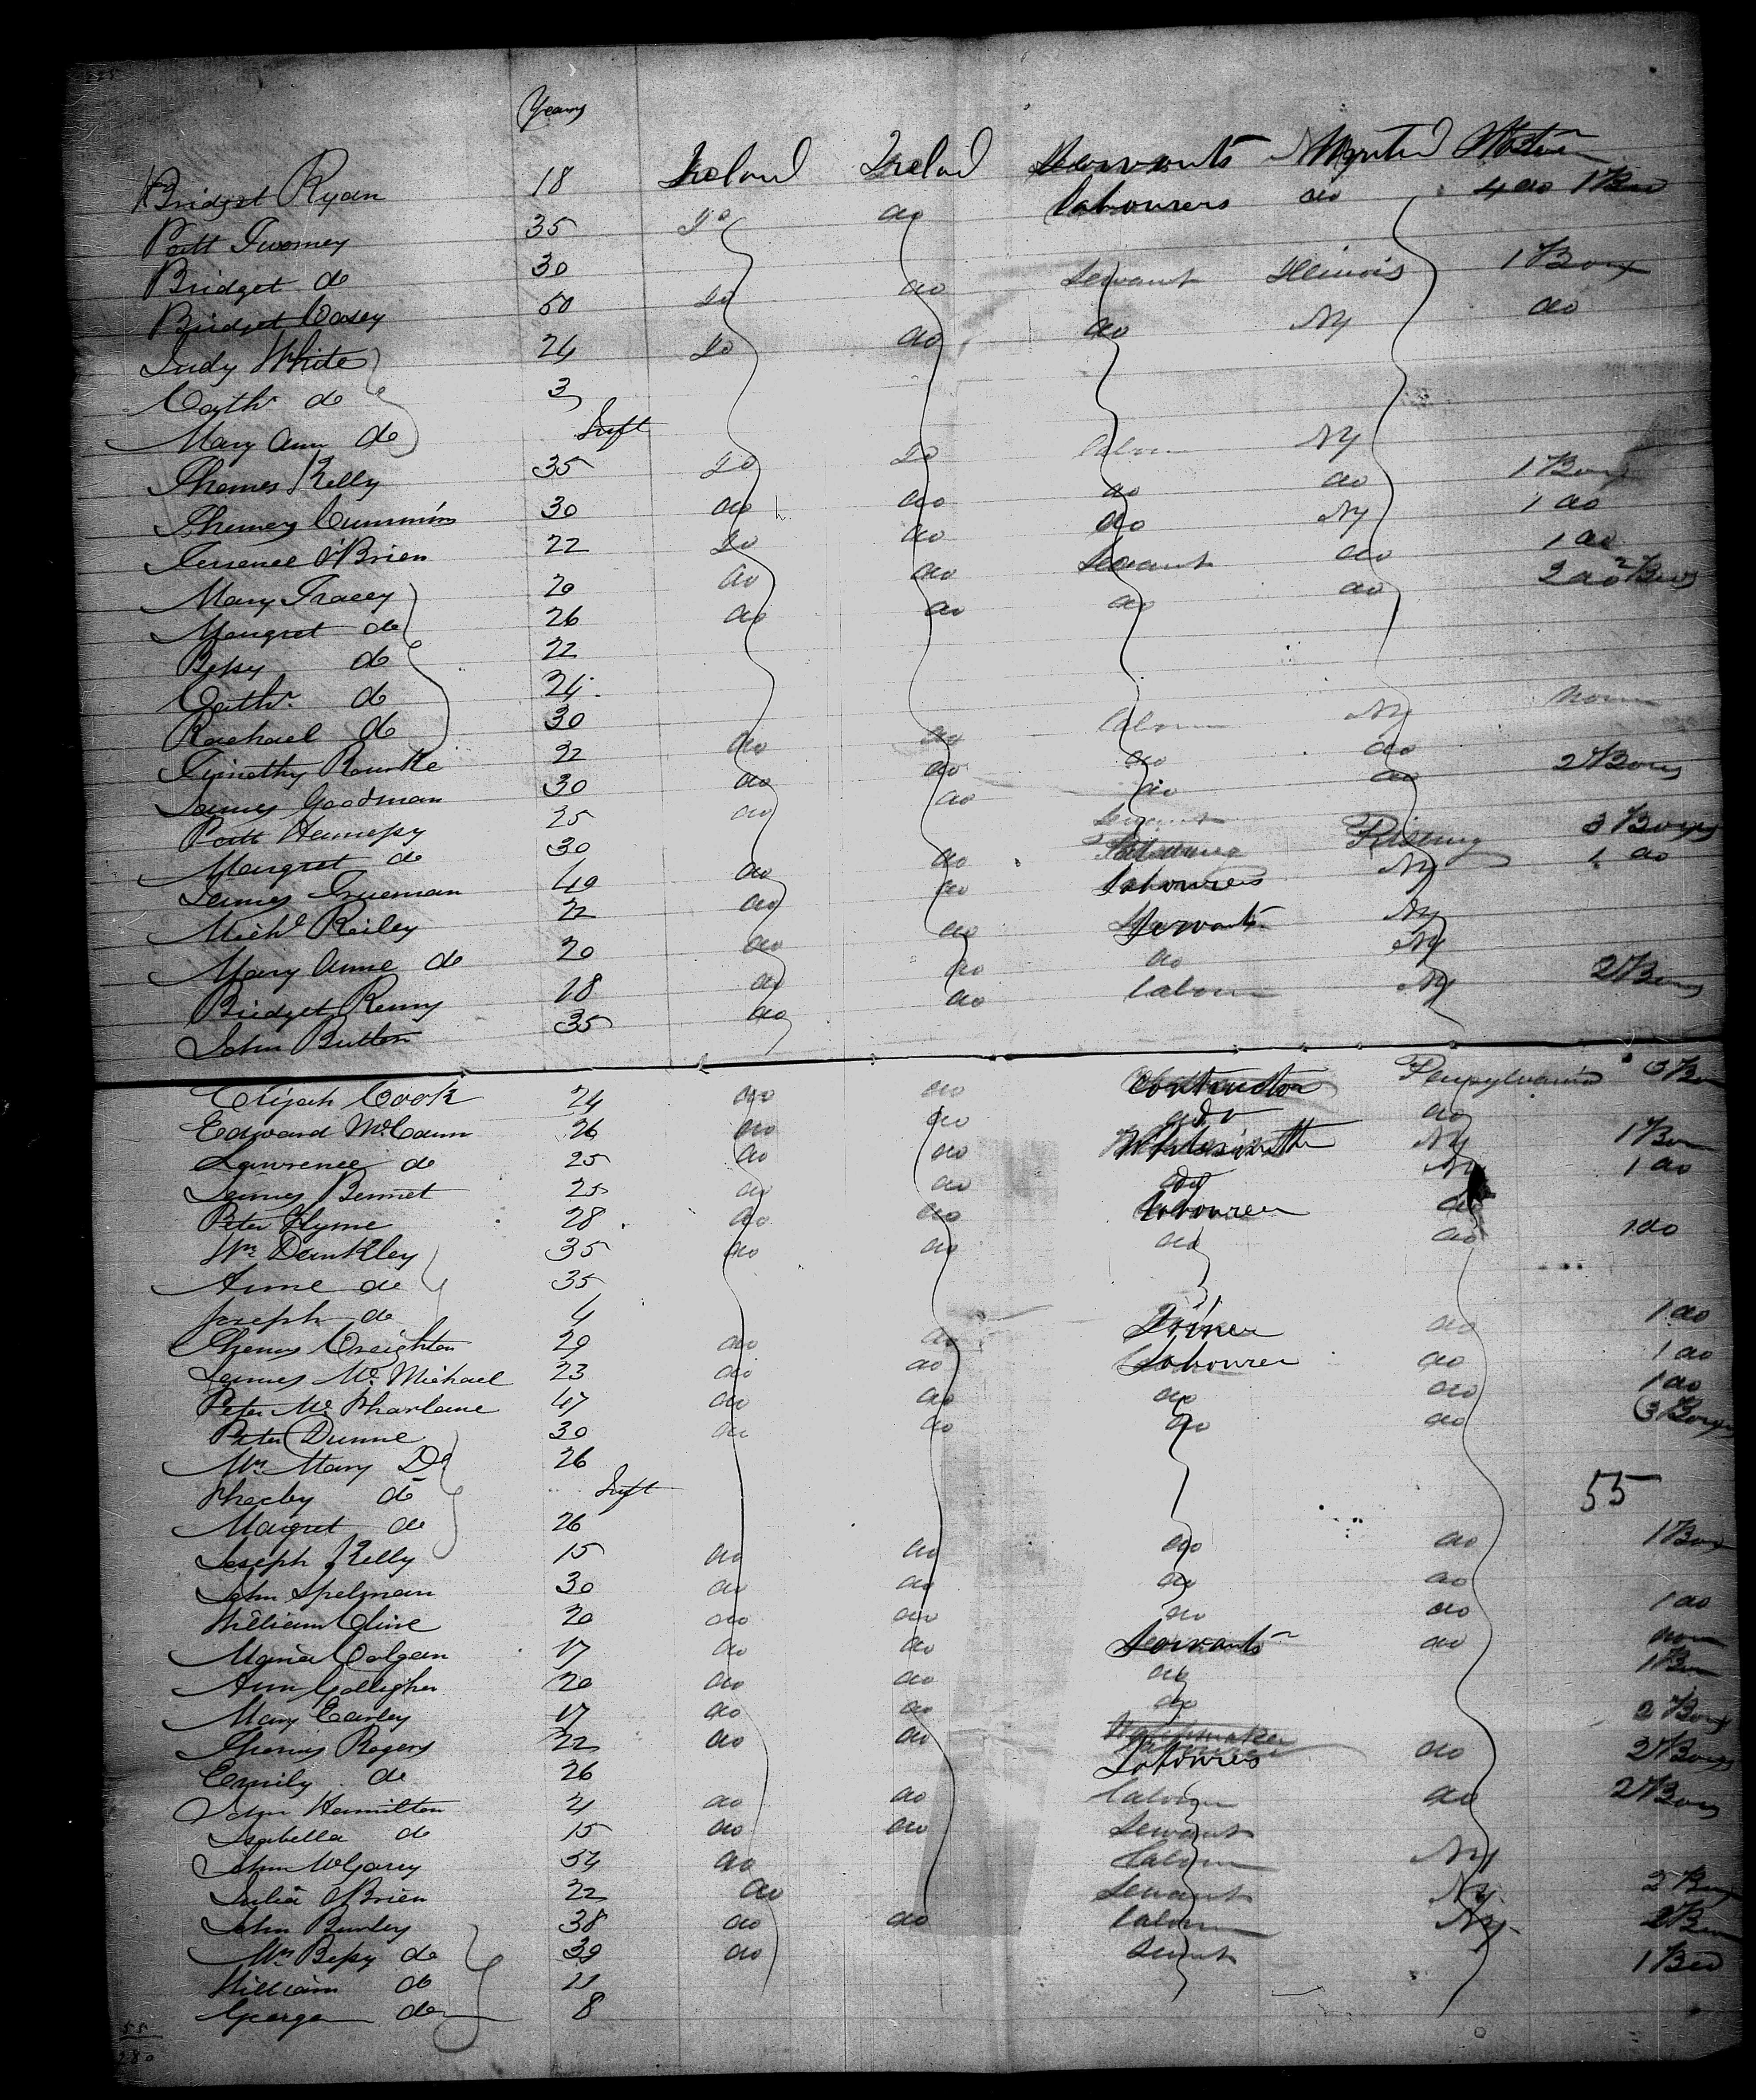 225
Years
Bridget Ryan 18 Ireland Ireland Servants
Patt Twomey 35 Do do labourers do 4 do 1 Bed
Bridget do 30
Bridget Casey 50 Do do Servant Illinois 1 Box
Judy White 24 Do do do NY do
Cathn do 3
Mary Ann do Inft
Thomas Kelly 35 Do Do labour NY
Thomas Cummins 30 do do do do 1 Box
Terrence O'Brien 22 Do do do NY 1 do
Mary Tracey 20 do do Servant do 1 do
Margret do 26 do do do do 2 do 2 Beds
Bessy do 22
Cathn do 24
Rachael do 30
Timothy Rourke 22 do do labour NY
James Goodman 30 do do do do 2 Boxes
Patt Hennessy 25 do do do do
Margret do 30 Servant
James Trueman 40 do do 3 Boxes
Michl Reiley 22 do do labourers NY 1 do
Mary Anne do 20 do do Servants NY
Bridget Kenny 18 do do do NY
John Butler 35 do do labour NY 2 Boxes
Elijah Cook 24 do do Contractor Pensylvania 3 Box
Edward McCann 26 do do do do
Lawrence do 25 do do Whitesmith NY 1 Box
James Bennet 25 do do do NY 1 do
Peter Flynne 28 do do labourer do
Wm Dunkley 35 do do do do 1 do
Anne do 35
Joseph do 4
Thomas Creighton 29 do do do 1 do
James McMichael 23 do do Labourer do 1 do
Peter McPharlane 47 do do do do 1 do
Peter Dunne 30 do do do do 3 Boxes
Mrs Mary Do 26
Pheeby do Inft 55
Margret do 26
Joseph Kelly 15 do do do do 1 Box
John Spelman 30 do do do do
William Cline 20 do do do do 1 do
Maria Colgan 17 do do Servants do
Ann Galligher 20 do do do 1 Box
Mary Earley 17 do do do 2 Boxes
Thomas Rogers 22 do do Watchmaker Labourers do 2 Boxes
Emily do 26
John Hamilton 21 do do labour do 2 Boxes
Isabella do 15 do do Servant
John McGarey 54 do labour NY
Julia O'Brien 22 do Servant NY 2 Boxes
John Burley 38 do do labour NY 2 Box
Mrs Bessy do 39 do Servant 1 Bed
William do 11
George do 8
55
280